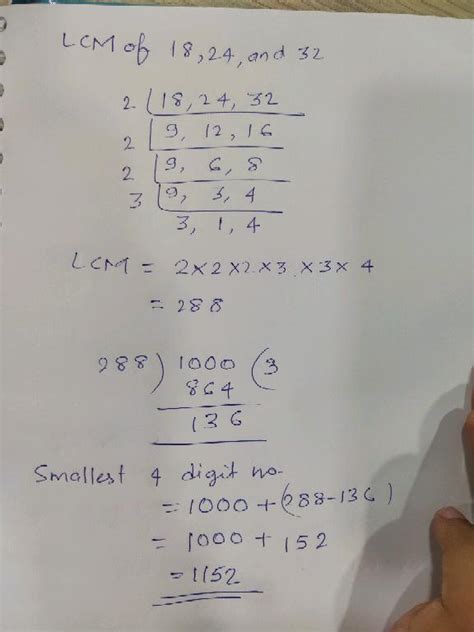 LCM of 18, 24, and 32
2 18, 24, 32
2 9, 12, 16
2 9, 6, 8
3 9, 3, 4
3, 1, 4
LCM = 2×2×2×3×3×4
= 288
288) 1000 (3
864
136
Smallest 4 digit no.
= 1000 + (288-136)
= 1000 + 152
= 1152